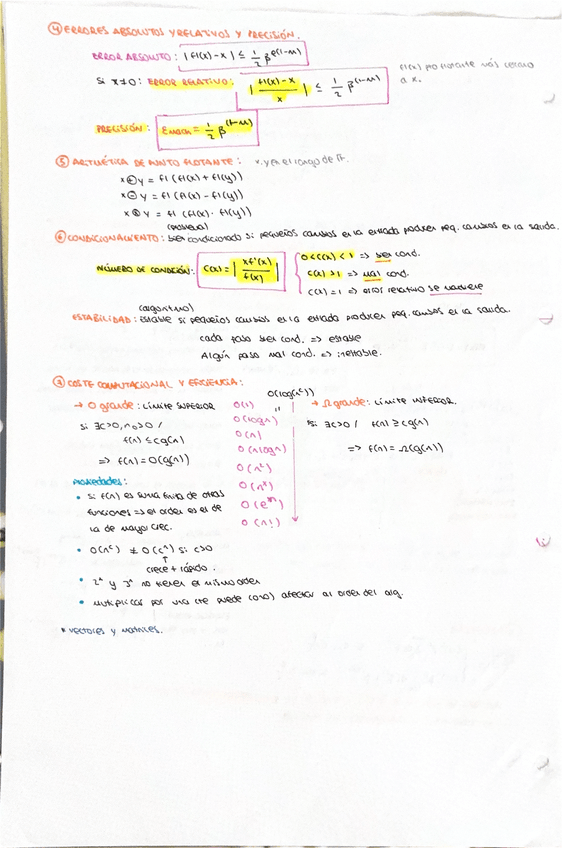 ④ ERRORES ABSOLUTOS Y RELATIVOS Y PRECISIÓN.
ERROR ABSOLUTO: |fl(x) - x| ≤ 1/2 β^(e(1-m))
Si x≠0: ERROR RELATIVO: |fl(x) - x / x| ≤ 1/2 β^(1-m)
fl(x) pto flotante más cercano a x.
PRECISIÓN: Emach = 1/2 β^(1-m)
⑤ ARITMÉTICA DE PUNTO FLOTANTE: x, y en el rango de F.
x⊕y = fl (fl(x) + fl(y))
x⊖y = fl (fl(x) - fl(y))
x⊗y = fl (fl(x) · fl(y))
(problema)
⑥ CONDICIONAMIENTO: bien condicionado si pequeños cambios en la entrada producen peq. cambios en la salida.
NÚMERO DE CONDICIÓN: C(x) = |xf'(x) / f(x)|
0<C(x)<1 => bien cond.
C(x)>1 => mal cond.
C(x)=1 => error relativo se mantiene
(algoritmo)
ESTABILIDAD: Estable si pequeños cambios en la entrada producen peq. cambios en la salida.
cada paso bien cond. => estable
Algún paso mal cond. => inestable.
⑦ COSTE COMPUTACIONAL Y EFICIENCIA:
→ O grande: LÍMITE SUPERIOR
si ∃c>0, n₀>0 /
f(n) ≤ cg(n)
=> f(n) = O(g(n))
O(log(n^c))
"
O(1)
O(log n)
O(n)
O(n log n)
O(n²)
O(n^x)
O(e^n)
O(n!)
→ Ω grande: LÍMITE INFERIOR.
si ∃c>0 / f(n) ≥ cg(n)
=> f(n) = Ω(g(n))
PROPIEDADES:
• Si f(n) es suma finita de otras
funciones => el orden es el de
la de mayor crec.
• O(n^c) ≠ O(c^n) si c>0
↑
crece + rápido.
• 2^n y 3^n no tienen el mismo orden
• Multiplicar por una cte puede (o no) afectar al orden del alg.
* VECTORES Y MATRICES.